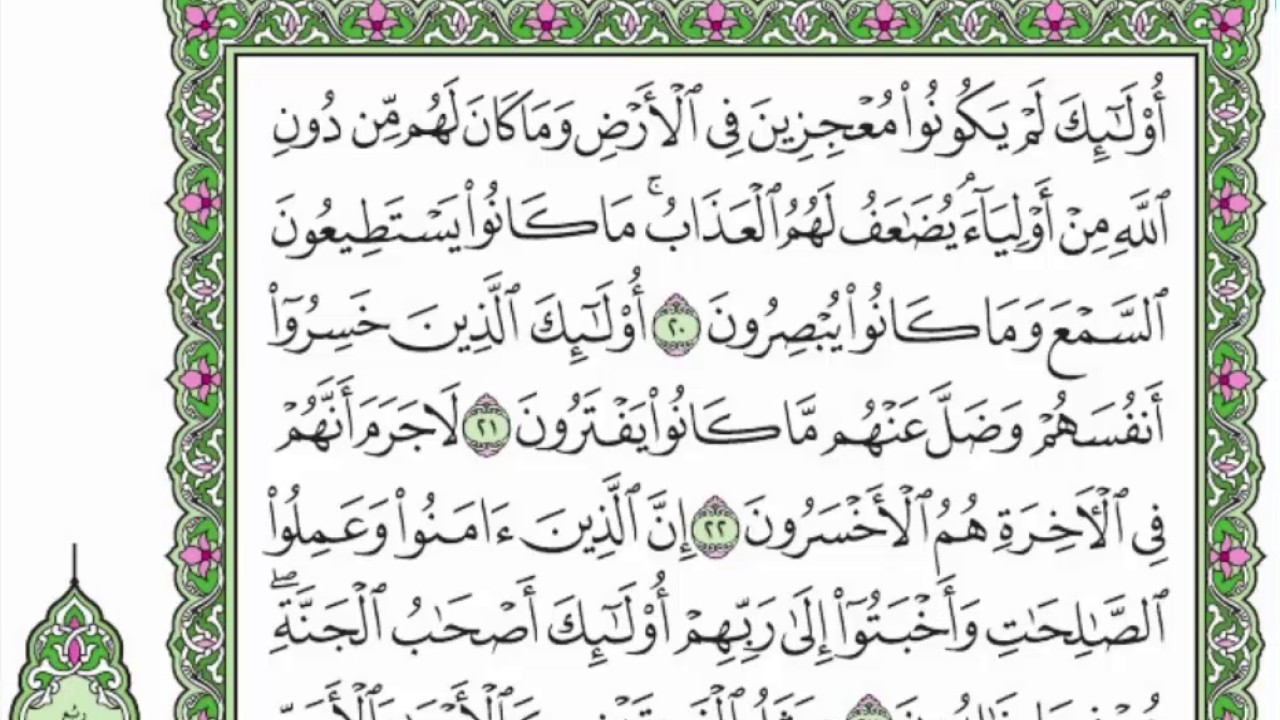 أُوْلَٰٓئِكَ لَمْ يَكُونُواْ مُعْجِزِينَ فِى ٱلْأَرْضِ وَمَا كَانَ لَهُم مِّن دُونِ
ٱللَّهِ مِنْ أَوْلِيَآءَۘ يُضَٰعَفُ لَهُمُ ٱلْعَذَابُۚ مَا كَانُواْ يَسْتَطِيعُونَ
ٱلسَّمْعَ وَمَا كَانُواْ يُبْصِرُونَ ٢٠ أُوْلَٰٓئِكَ ٱلَّذِينَ خَسِرُوٓاْ
أَنفُسَهُمْ وَضَلَّ عَنْهُم مَّا كَانُواْ يَفْتَرُونَ ٢١ لَا جَرَمَ أَنَّهُمْ
فِى ٱلْأٓخِرَةِ هُمُ ٱلْأَخْسَرُونَ ٢٢ إِنَّ ٱلَّذِينَ ءَامَنُواْ وَعَمِلُواْ
ٱلصَّٰلِحَٰتِ وَأَخْبَتُوٓاْ إِلَىٰ رَبِّهِمْ أُوْلَٰٓئِكَ أَصْحَٰبُ ٱلْجَنَّةِۖ